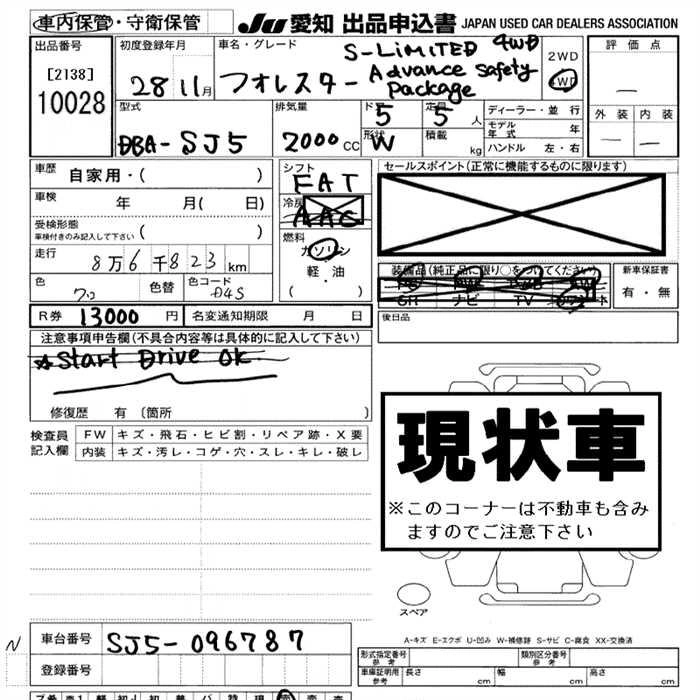 車内保管・守衛保管
JU 愛知 出品申込書 JAPAN USED CAR DEALERS ASSOCIATION
出品番号
[2138]
10028
初度登録年月
28 11月
車名・グレード
フォレスター
S-LiMiTED 4WD
Advance Safety
Package
2WD
4WD
評価点
—
外装 内装
— —
型式
DBA-SJ5
排気量
2000 CC
ドア
5
形状
W
定員
5 人
積載
kg
ディーラー・並行
モデル年式 年
ハンドル 左・右
車歴 自家用・( )
車検 年 月( 日)
受検形態
車検付きのみ記入して下さい ( )
走行 8万6千823km
色 色替 色コード
D4S
シフト
FAT
冷房
AAC
燃料
ガソリン
軽・油
( )
セールスポイント(正常に機能するものに限ります)
装備品(純正品に限り○をつけてください)
PS PW
SR ナビ TV
新車保証書
有・無
後日品
R券 13000 円 名変通知期限 月 日
注意事項申告欄(不具合内容等は具体的に記入して下さい)
☆Start Drive OK
修復歴 有 〔箇所 〕
検査員
記入欄
FW キズ・飛石・ヒビ割・リペア跡・X要
内装 キズ・汚レ・コゲ・穴・スレ・キレ・破レ
現状車
※このコーナーは不動車も含み
ますのでご注意下さい
スペア
A-キズ E-エクボ U-凹み W-補修跡 S-サビ C-腐食 XX-交換済
N
車台番号 SJ5-096787
登録番号
形式指定番号
参考
類別区分番号
参考
車庫証明用
参考
長さ cm 幅 cm 高さ cm